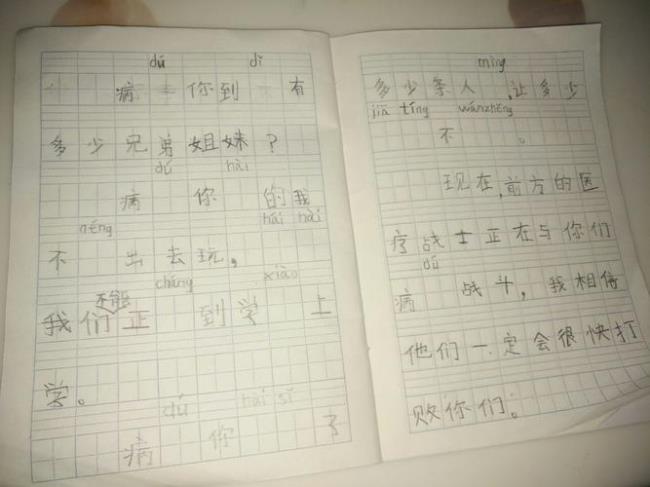 dú dǐ
病 你到 有
多少兄弟姐妹？
dú hài
病 你 的我
néng hāi hài
不 出去玩，
cháng xiào
不能
我们正 到学 上
学。
dú hài sǐ
病 你 了
mìng
多少条人 ,让多少
jiā tíng wánzhěng
不 。
现在,前方的医
疗战士正在与你们
dú
病 战斗，我相信
他们一定会很快打
败你们。